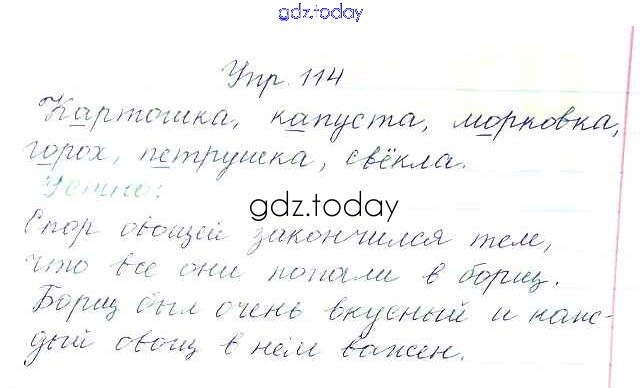 gdz.today
Упр. 114
Картошка, капуста, морковка,
горох, петрушка, свёкла.
Устно:
gdz.today
Спор овощей закончился тем,
что все они попали в борщ.
Борщ был очень вкусный и каж-
дый овощ в нём важен.